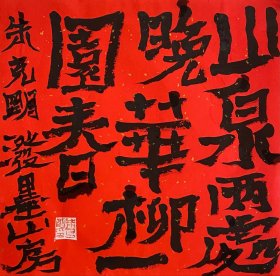 山泉兩處
晚華柳一
園春
朱克明潑墨山房